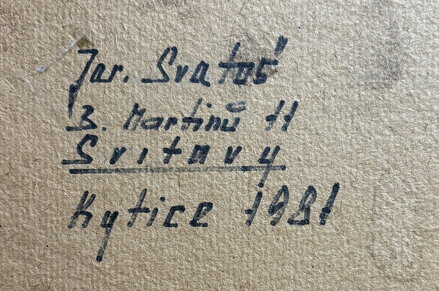 Jar. Svatoš
B. Martinů 11
Svitavy
Kytice 1981